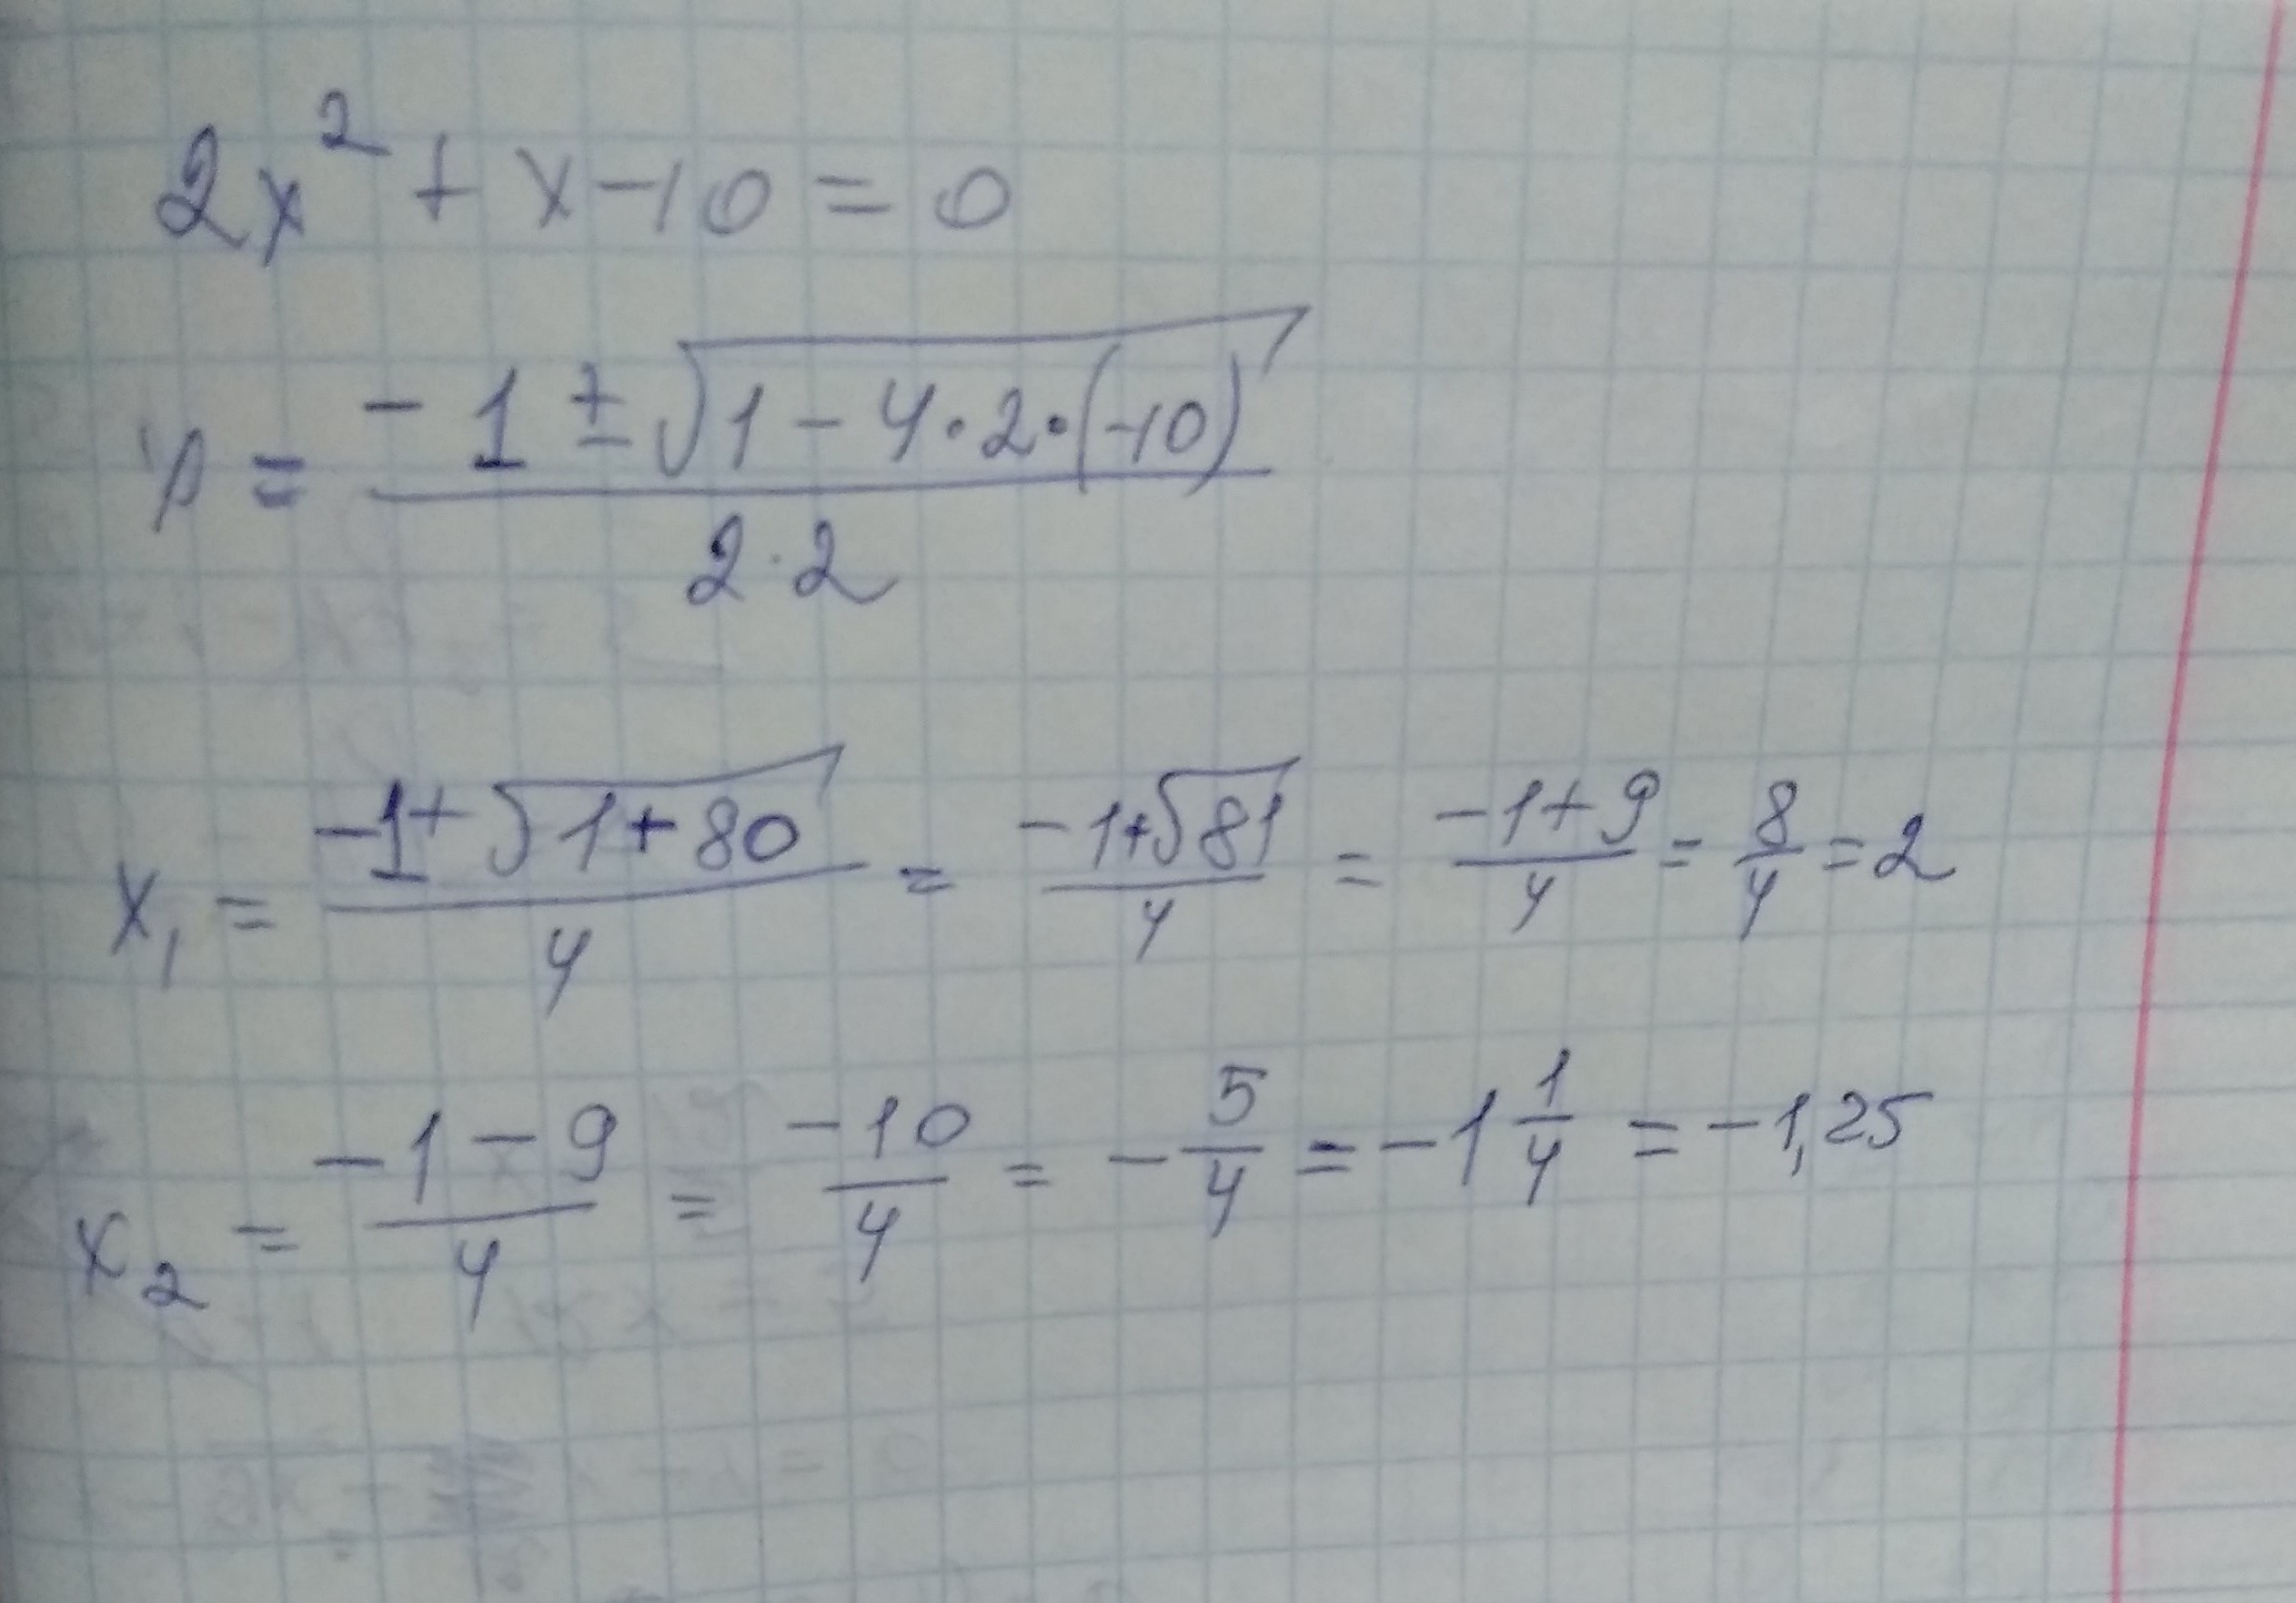 2x² + x - 10 = 0
x = (-1 ± √(1 - 4·2·(-10))) / (2·2)
x₁ = (-1 + √(1 + 80)) / 4 = (-1 + √81) / 4 = (-1 + 9) / 4 = 8/4 = 2
x₂ = (-1 - 9) / 4 = -10/4 = -5/4 = -1 1/4 = -1,25